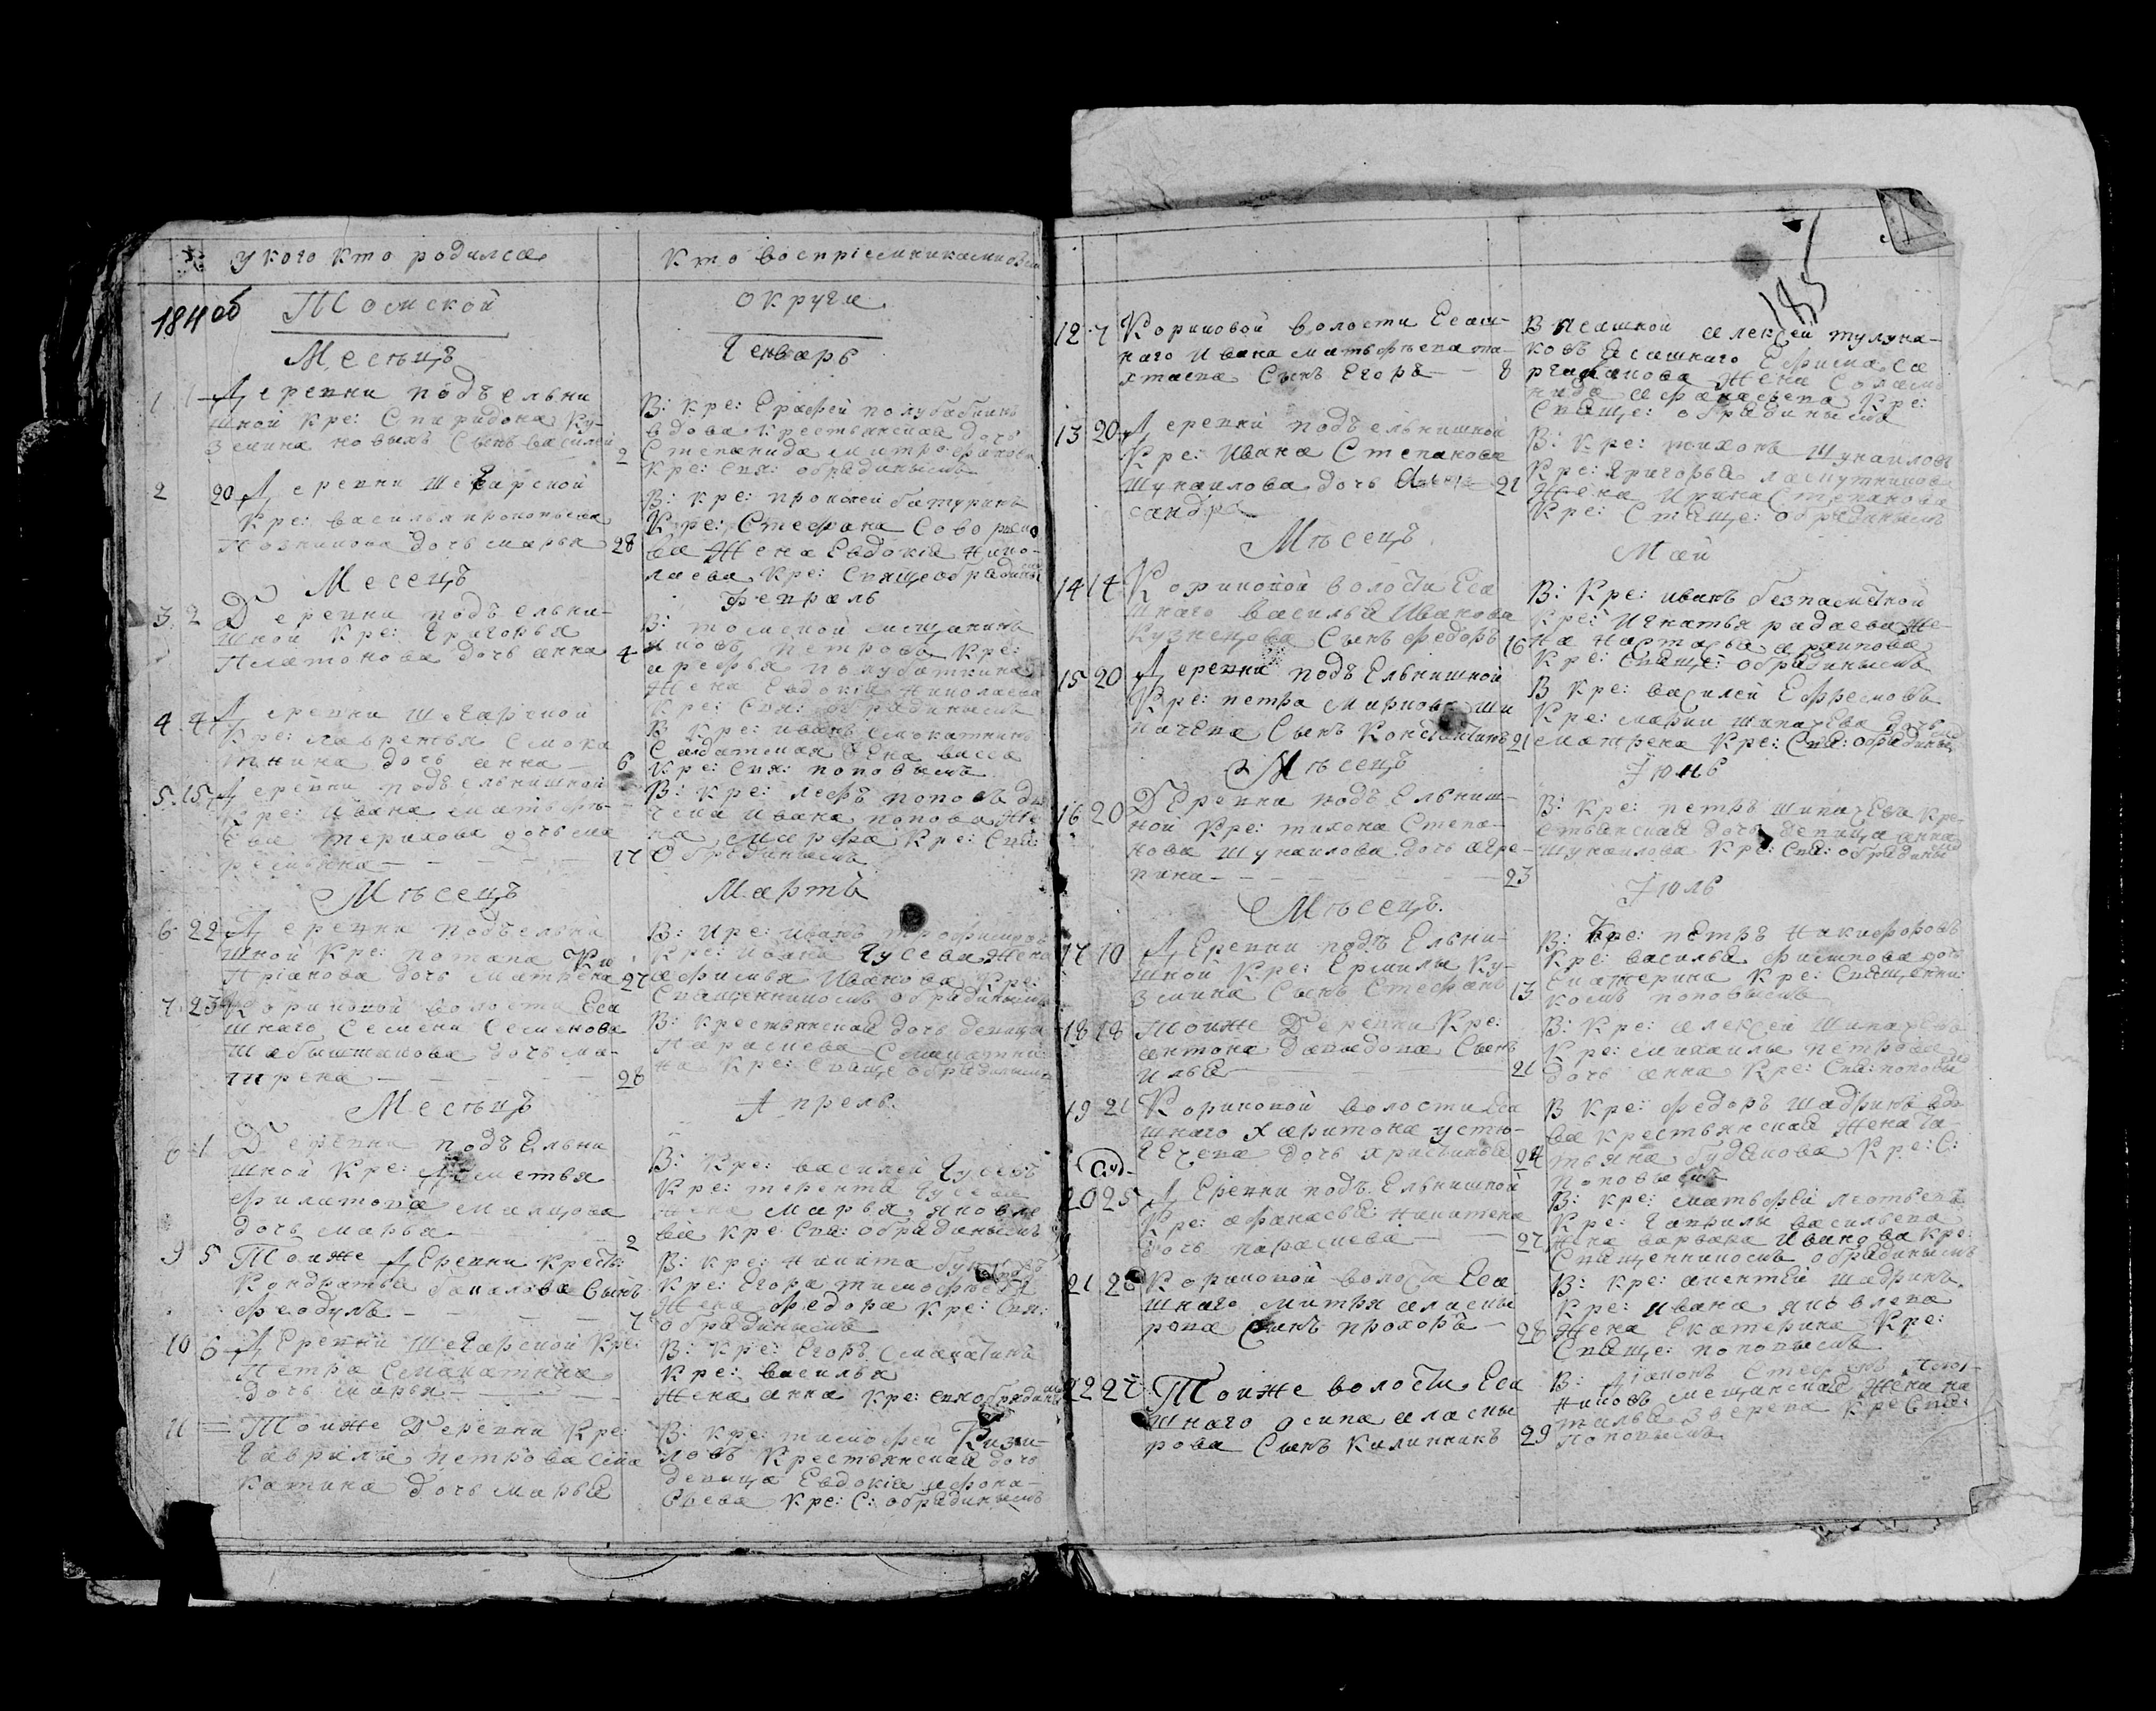 у кого кто родился
Кто воспріемниками были
184 об
Томской
округи
Месецъ
Генварь
1 1 Деревни подъельни
шной Кре: Спиридона Ку-
змина новыхъ Сынъ василей 2
В: кре: Ерофей полубабкинъ
вдова Крестьянская дочь
Степанида митрофанова
Кре: Спя: обрядинымъ
2 20 Деревни Шегарской
Кре: василья прокопьева
дочь марья 28
В: кре: прокопей батуринъ
Кре: Стефана
ва Жена Евдокія Нико-
лаева Кре: Спяще обрядинымъ
Месецъ
Февраль
3 2 Деревни подъ ельни-
шной Кре: Григорья
Платонова дочь анна 4
В: томской мещанинъ
яковъ петровъ Кре:
арефья полубаткина
Жена Евдокія Николаева
Кре: Спя: обрядинымъ
4 4 Деревни Шегарской
Кре: лаврентья Смока
тнина дочь анна 6
В Кре: иванъ Смокатнинъ
Салдатская Жена васса
Кре: Спя: поповымъ
5 15 Деревни подъельнишной
Кре: Ивана матвее-
ева терихова дочь ма
ремьяна 17
В: кре: леофъ поповъ дья
чека Ивана попова Же
на марфа Кре: Спя:
Обрядинымъ
Мѣсецъ
Мартъ
6 22 Деревни подъельни
шной Кре: потапа Ки
пріанова дочь матрена 27
В: Кре: иванъ трофимовъ
Кре: Ивана Гусева Жена
афимья Иванова Кре:
Священникомъ обрядинымъ
7 23 Кориковой волости Еса
шнаго Семена Семенова
Шабышпакова дочь ма-
трена 28
В: Крестьянская дочь девица
Параскева Смакатни
на Кре: Спяще обрядинымъ
Месецъ
Апрель
8 1 Деревни подъ Ельни
шной Кре: Дементья
Филатова малцова
дочь марья 2
В: Кре: василей Гусевъ
Кре: терента Гусева
Жена марья яковле
ва кре Спя: обрядинымъ
9 5 Тоиже Деревни Кресть:
Кондратья Сынъ
феодулъ 7
В: кре: Никита
Кре: Егора тимофѣева
Жена федора Кре: Спя:
обрядинымъ
10 6 Деревни Шегарской Кре:
Петра Смакатина
дочь марья
В: Кре: Егоръ Смакатинъ
Кре: василья
Жена анна кре: спя обрядинымъ
11 = Тоиже Деревни Кре:
Гаврилы петрова Сма
катина дочь марья
В: кре: тимофей Кизи-
ловъ Крестьянская дочь
девица Евдокія афона-
сьева Кре: С: обрядинымъ
185
12 7 Кориковой волости Есаш-
наго Ивана матвѣева та-
хтаева Сынъ Егоръ 8
В Ясашной алексей тулума-
ковъ Есашнаго Ефима Са
Жена Соломо
нида афанасьева Кре:
Спяще: обрядинымъ
13 20 Деревни подъельнишной
Кре: Ивана Степанова
Шумаилова дочь Алек-
сандра 21
В: Кре: тихонъ Шумаиловъ
Кре: Григорья ласкутникова
Жена Ирина Степанова
Кре: Спяще: обрядинымъ
Мѣсецъ
Май
14 14 Кориковой волости Еса
шнаго василья Иванова
Кузнецова Сынъ федоръ 16
В: Кре: иванъ безпаметной
Кре: Игнатья радаева Же-
на Настасья архипова
Кре: Спяще: обрядинымъ
15 20 Деревни подъ Ельнишной
Кре: петра маркова Ши
пачева Сынъ Константинъ 21
В Кре: василей Ефремовъ
Кре: марки шипачева дочь
матрена Кре: Спя: обрядинымъ
Мѣсецъ
Іюнь
16 20 Деревни подъ Ельниш-
ной Кре: тихона Степа-
нова Шумаилова дочь агре-
пина 23
В: кре: петръ шипачевъ кре-
стьянская дочь девица анна
Шумаилова Кре: Спя: обрядинымъ
Мѣсецъ
Іюль
17 10 Деревни подъ Ельни-
шной Кре: Ермилы Ку-
змина Сынъ Стефанъ 13
В: Кре: петръ Никифоровъ
Кре: василья филипова дочь
Екатерина Кре: Священни:
комъ поповымъ
18 18 Тоиже Деревни Кре:
антона Давыдова Сынъ
Илья 21
В: Кре: алексей Шипачевъ
Кре: михаилы петрова
дочь анна Кре: Спя: поповымъ
19 21 Кориковой волости Еса
шнаго харитона устю-
гечева дочь христинья 24
В Кре: федоръ шадринъ вдо
ва крестьянская жена та-
тьяна Гудакова Кре: С:
поповымъ
20 25 Деревни подъ Ельнишной
Кре: афанасья Никитена
дочь параскева 27
В: Кре: матвѣей леотьевъ
Кре: Гаврилы васильева
Жена варвара Иванова Кре:
Священникомъ обрядинымъ
21 26 Кориковой волости Еса
шнаго митрея аласны
рова Сынъ прохоръ 28
В: Кре: акентей шадринъ
Кре: ивана яковлева
Жена Екатерина Кре:
Спяще: поповымъ
22 27 Тоиже волости Еса
шнаго осипа аласны
рова Сынъ Калинникъ 29
В: Дїаконъ Стефанъ
никовъ мещанская Жена на
талья Зверева Кре Спя:
поповымъ